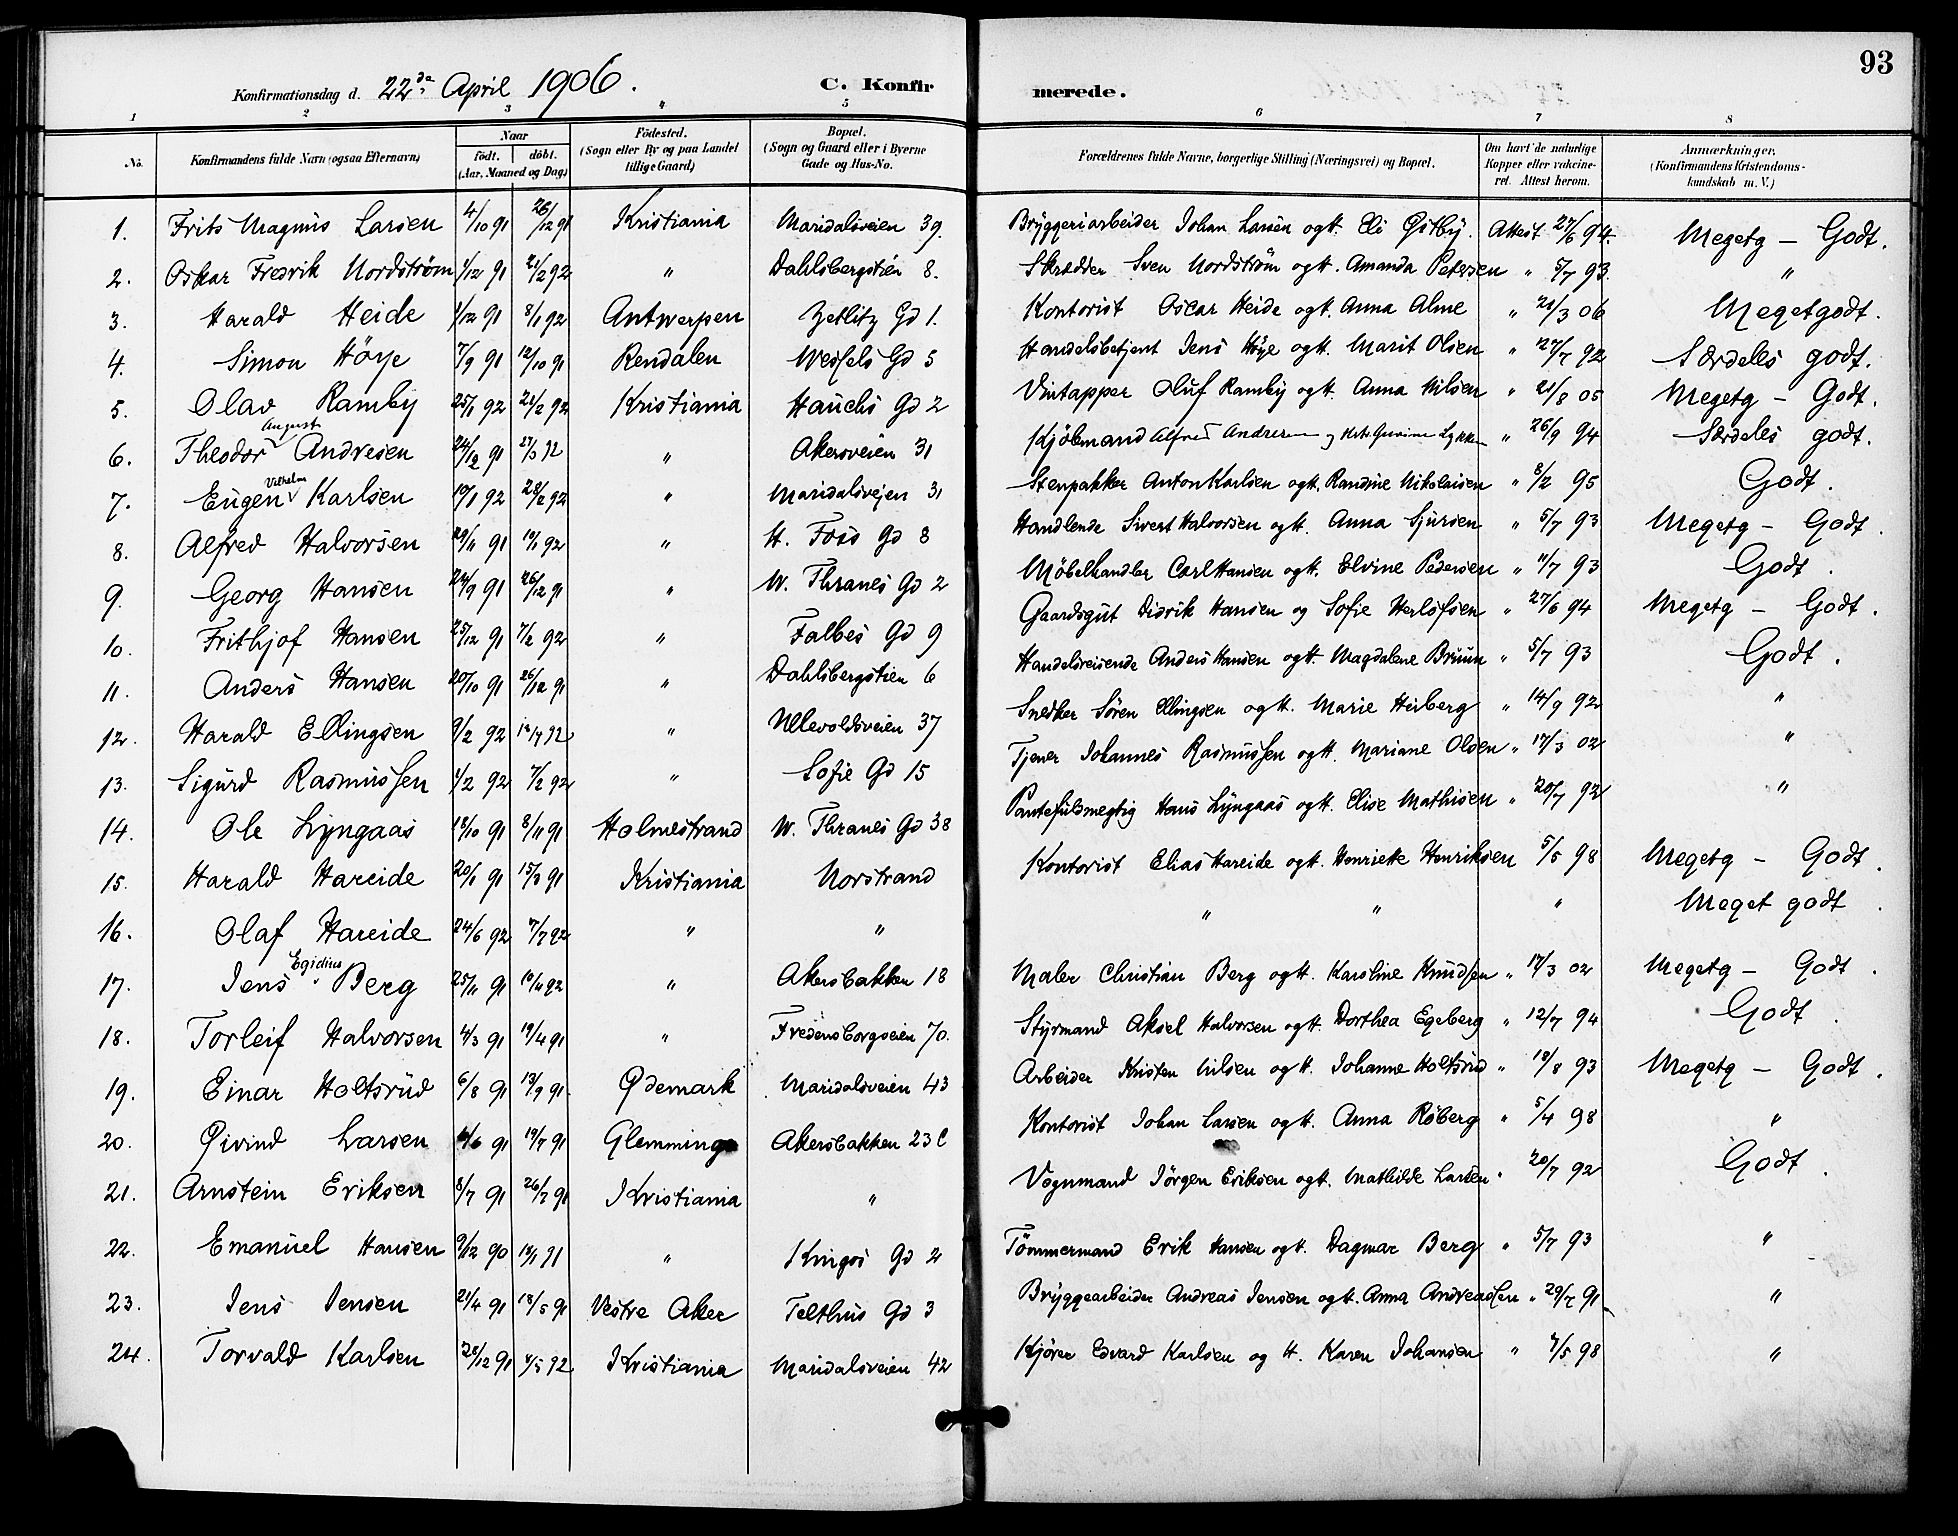 93
Konfirmationsdag d. 22de April 1906. C. Konfirmerede.
1 2 3 4 5 6 7 8
No. Konfirmandens fulde Navn (ogsaa Efternavn) Naar født. døbt. (Aar, Maaned og Dag) Födested. (Sogn eller By og paa Landet tillige Gaard) Bopæl. (Sogn og Gaard eller i Byerne Gade og Hus-No. Forældrenes fulde Navne, borgerlige Stilling (Næringsvei) og Bopæl. Om havt de naturlige Kopper eller vakcineret. Attest herom. Anmærkninger. (Konfirmandens Kristendomskundskab m. V.)
1. Frits Magnus Larsen 4/10 91 26/12 91 Kristiania Maridalsveien 39. Bryggeriarbeider Johan Larsen og H. Eli Østby. Attest 27/6 94. Megetg - Godt.
2. Oskar Fredrik Nordstrøm 1/12 91 21/2 92 " Dahlsbergstien 8. Skrædder Sven Nordstrøm og H. Amanda Petersen " 5/7 93. "
3. Harald Heide 1/12 91 8/1 92 Antwerpen Zetlitz Gd 1. Kontorist Oscar Heide og H. Anna Alme " 21/3 06 Megetgodt.
4. Simon Höye 7/9 91 12/10 91 Rendalen Wessels Gd 5 Handelsbetjent Jens Höye og H. Marit Olsen " 27/7 92 Særdeles godt.
5. Olav Ramby 25/1 92 21/2 92 Kristiania Hauchs Gd 2 Vintapper Oluf Ramby og H. Anna Nilsen " 21/8 05 Megetg - Godt.
6. Theodor August Andresen 24/12 91 27/3 92 " Akersveien 31 Kjöbmand Alfred Andresen og " 26/9 94 Særdeles godt.
7. Eugen Vilhelm Karlsen 19/1 92 28/2 92 " Maridalsveien 31 Stenpakker Anton Karlsen og H. Randine Nikolaisen " 8/2 95 Godt.
8. Alfred Halvorsen 29/11 91 19/1 92 " H. Foss Gd 8 Handlende Sivert Halvorsen og H. Anna Sjursen " 5/7 93 Megetg - Godt.
9. Georg Hansen 24/9 91 26/12 91 " M. Thranes Gd 2 Möbelhandler Carl Hansen og H. Elvine Pedersen " 11/7 93 Godt.
10. Frithjof Hansen 25/12 91 7/2 92 " Falbes Gd 9 Gaardsgut Didrik Hansen og Sofie Herlofsen " 27/6 94 Megetg - Godt.
11. Anders Hansen 20/10 91 26/12 91 " Dahlsbergstien 6 Handelsreisende Anders Hansen og H. Magdalene Bruun " 5/7 93 Godt.
12. Harald Ellingsen 9/2 92 92 " Ullevoldsveien 37 Snedker Sören Ellingsen og H. Marie Herberg " 14/9 92 "
13. Sigurd Rasmussen 1/2 92 7/2 92 " Sofie Gd 15 Tjener Johannes Rasmussen og H. Mariane Olsen " 17/3 02 "
14. Ole Lyngaas 18/10 91 8/11 91 Holmestrand M. Thranes Gd 38 Pantefuldmegtig Hans Lyngaas og H. Elise Mathisen " 20/7 92 "
15. Harald Hareide 20/1 91 15/3 91 Kristiania Norstrand Kontorist Elias Hareide og H. Henriette Henriksen 5/5 98 Megetg - Godt.
16. Olaf Hareide 24/6 92 7/7 92 " " " " " Meget godt.
17. Jens Egidius Berg 25/11 91 10/4 92 " Akersbakken 18 Maler Christian Berg og H. Karoline Knudsen " 17/3 02 Megetg - Godt.
18. Torleif Halvorsen 4/3 91 19/4 91 " Fredensborgveien 70. Styrmand Aksel Halvorsen og H. Dorthea Egeberg " 12/7 94 Godt.
19. Einar Holtsrud 6/8 91 13/9 91 Ødemark Maridalsveien 43 Arbeider Kristen Nilsen og H. Johanne Holtsrud " 18/8 93 Megetg - Godt.
20. Øivind Larsen 91 19/7 91 Glemminge Akersbakken 23 C Kontorist Johan Larsen og H. Anna Roberg " 5/4 98 "
21. Arnstein Eriksen 8/7 91 26/7 91 Kristiania " Vognmand Jörgen Eriksen og H. Mathilde Larsen " 20/7 92 Godt.
22. Emanuel Hansen 9/12 90 18/1 91 " Kingos Gd 2 Tömmermand Erik Hansen og H. Dagmar Berg " 5/7 93 "
23. Jens Jensen 21/4 91 18/5 91 Vestre Aker Telthus Gd 3 Bryggearbeider Andreas Jensen og H. Anna Andreassen " 29/7 91 "
24. Torvald Karlsen 28/12 91 92 Kristiania Maridalsveien 42 Kjörer Edvard Karlsen og H. Karen Johansen " 7/5 98 "